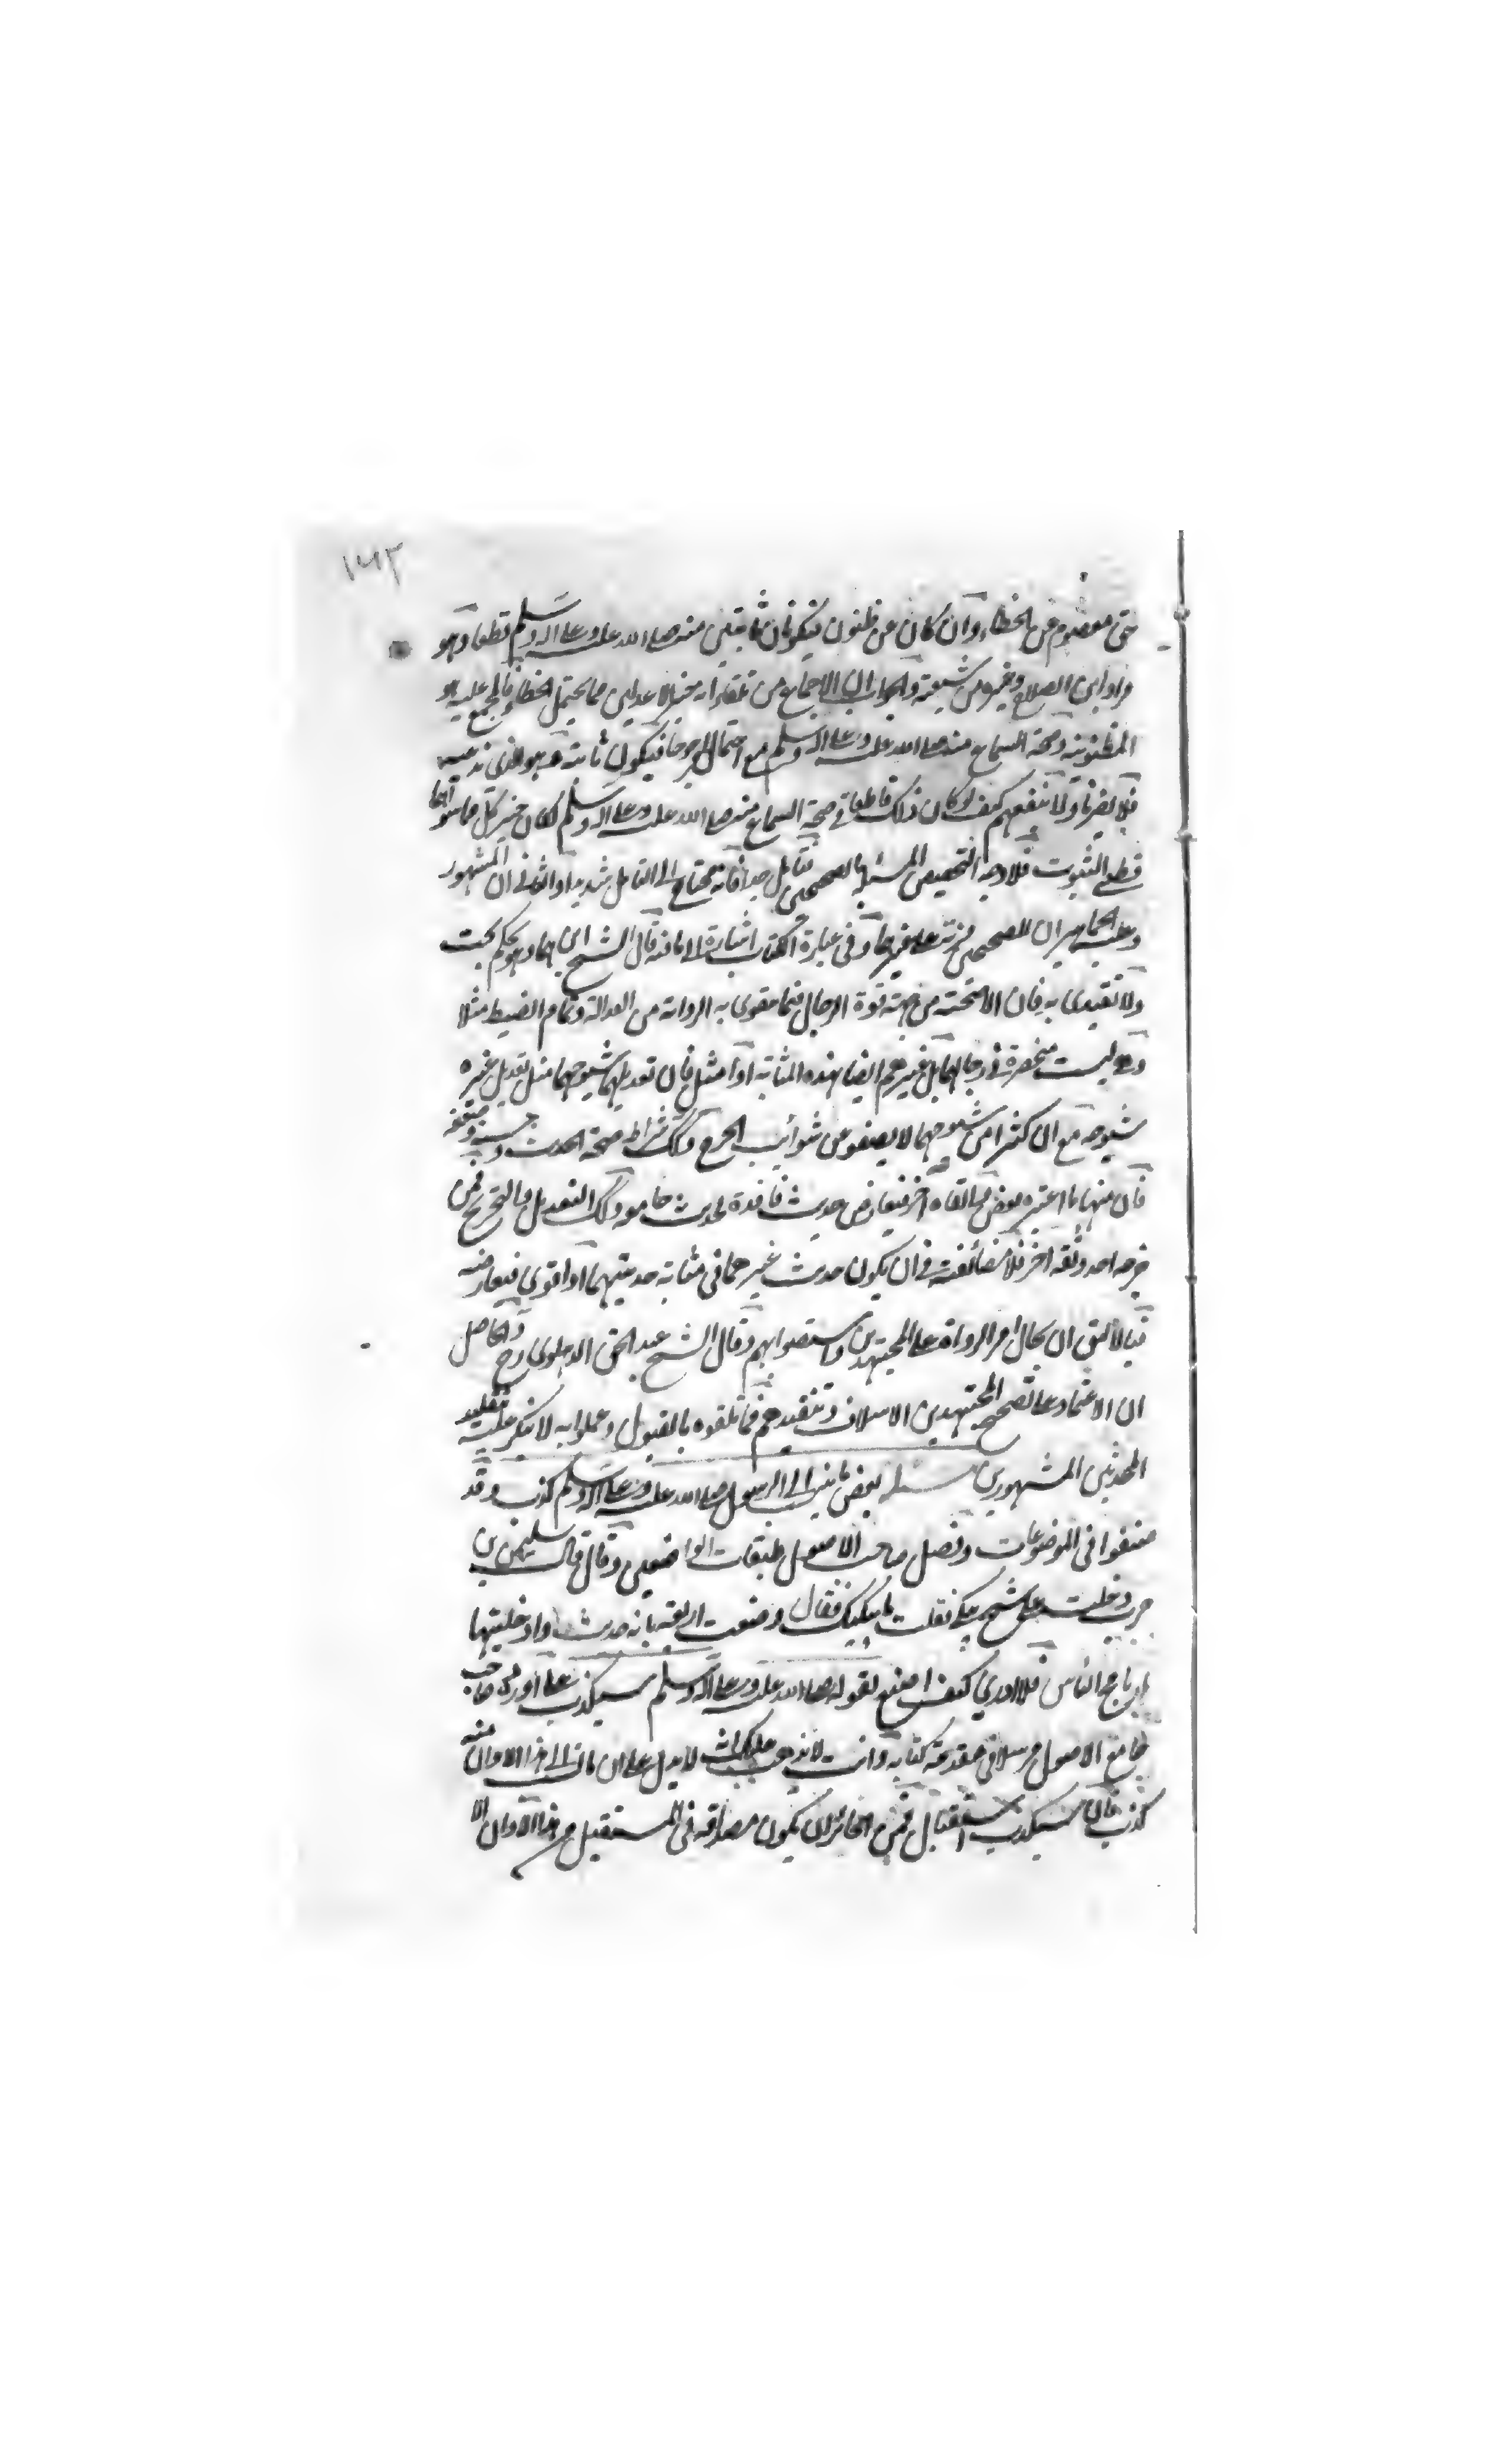 ١٦٣
حتى معصوم عن الخطاء وان كان عن ظنون فيكونان ثابتين منه صلى الله عليه وعلى اله وسلم قطعا وهو
مراد ابن الصلاح وغيره من شيعته والجواب ان الاجماع من تلقاء انه خبر لا عدلين مما يحتمل الخطا فالمجمع عليه هو
المظنونية وصحة السماع منه صلى الله عليه وعلى اله وسلم مع احتمال مرجوح فيكون ثابتة هو الذي ندعيه
فلا يضرنا ولا ينفعهم كيف لو كان ذلك قاطعا في صحة السماع منه صلى الله عليه وعلى اله وسلم لكان خبر كل ما سواهما
قطعي الثبوت فلا وجه لتخصيص المسئلة بالصحيحين تأمل جدا فانه محتاج الى التامل شديدا والثاني ان المشهور
وعليه الجماهير ان للصحيحين مزية على غيرهما وفي عبارة الكتاب اشارة الى ما فيه قال الشيخ ابن الهمام وهو تحكم بحت
ولا تقيدى به فان الاصحية من جهة قوة الرجال فيما يقوى به الرواية من العدالة وتمام الضبط مثلا
وهي ليست منحصرة في رجالهما بل غيرهم ايضا بهذه المثابة او امثل فان تعديلهما شيوخهما مثل تعديل غيره
شيوخه مع ان كثيرا من شيوخهما لا يصفو عن شوائب الجرح وكذلك شرائط صحة الحديث وحسنه وضعفه
فان منها ما اعتبره بعض والقاه اخر فيعارض حديث فاقدة لحديث حاموه وكذلك التعديل والتجريح فمن
جرحه احد وثقه اخر فلا مضائقة في ان يكون حديث غيرهما في مثابة حديثهما او اقوى فيعارضه
فبالاليق ان يحال امر الرواة على المجتهدين واستصوابهم وقال الشيخ عبد الحق الدهلوى رح والحاصل
ان الاعتماد على تصحيح المجتهدين الاسلاف وتنقيدهم فما تلقوه بالقبول وعملوا به لا ينكر عليه بتقليد
المحدثين المشهورين مسئلة بعض ما ينسب الى الرسول صلى الله عليه وعلى اله وسلم كذب وقد
صنفوا في الموضوعات وفصل صاحب الاصول طبقات الواضعين وقال قال سليمن بن
حرب دخلت على شيخ يبكى فقلت ما يبكيك فقال وضعت اربعمائة حديث وادخلتها
بارناج الناس فلا ادرى كيف اصنع لقوله صلى الله عليه وعلى اله وسلم سيكذب على اورده صاحب
جامع الاصول مرسلا في مقدمة كتابه وانت لا يذهب عليك انه لا يدل على ان ما نسب الى هذا الاوان منه
كذب فان سيكذب استقبال فمن الجائز ان يكون مصداقه في المستقبل من هذا الاوان الا